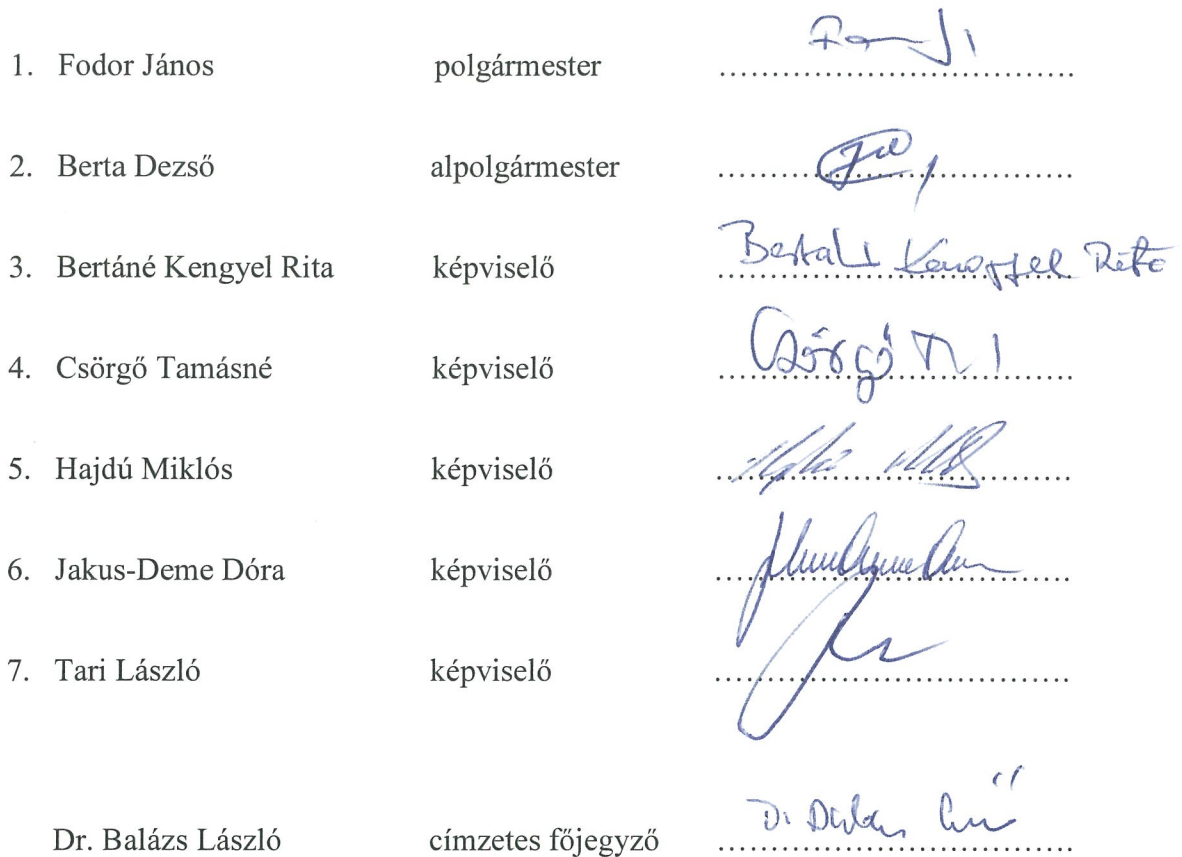 1. Fodor János polgármester ........................................
2. Berta Dezső alpolgármester ........................................
3. Bertáné Kengyel Rita képviselő ........................................ Kengyel Rita
4. Csörgő Tamásné képviselő ........................................ Csörgő
5. Hajdú Miklós képviselő ........................................
6. Jakus-Deme Dóra képviselő ........................................
7. Tari László képviselő ........................................
Dr. Balázs László címzetes főjegyző ........................................